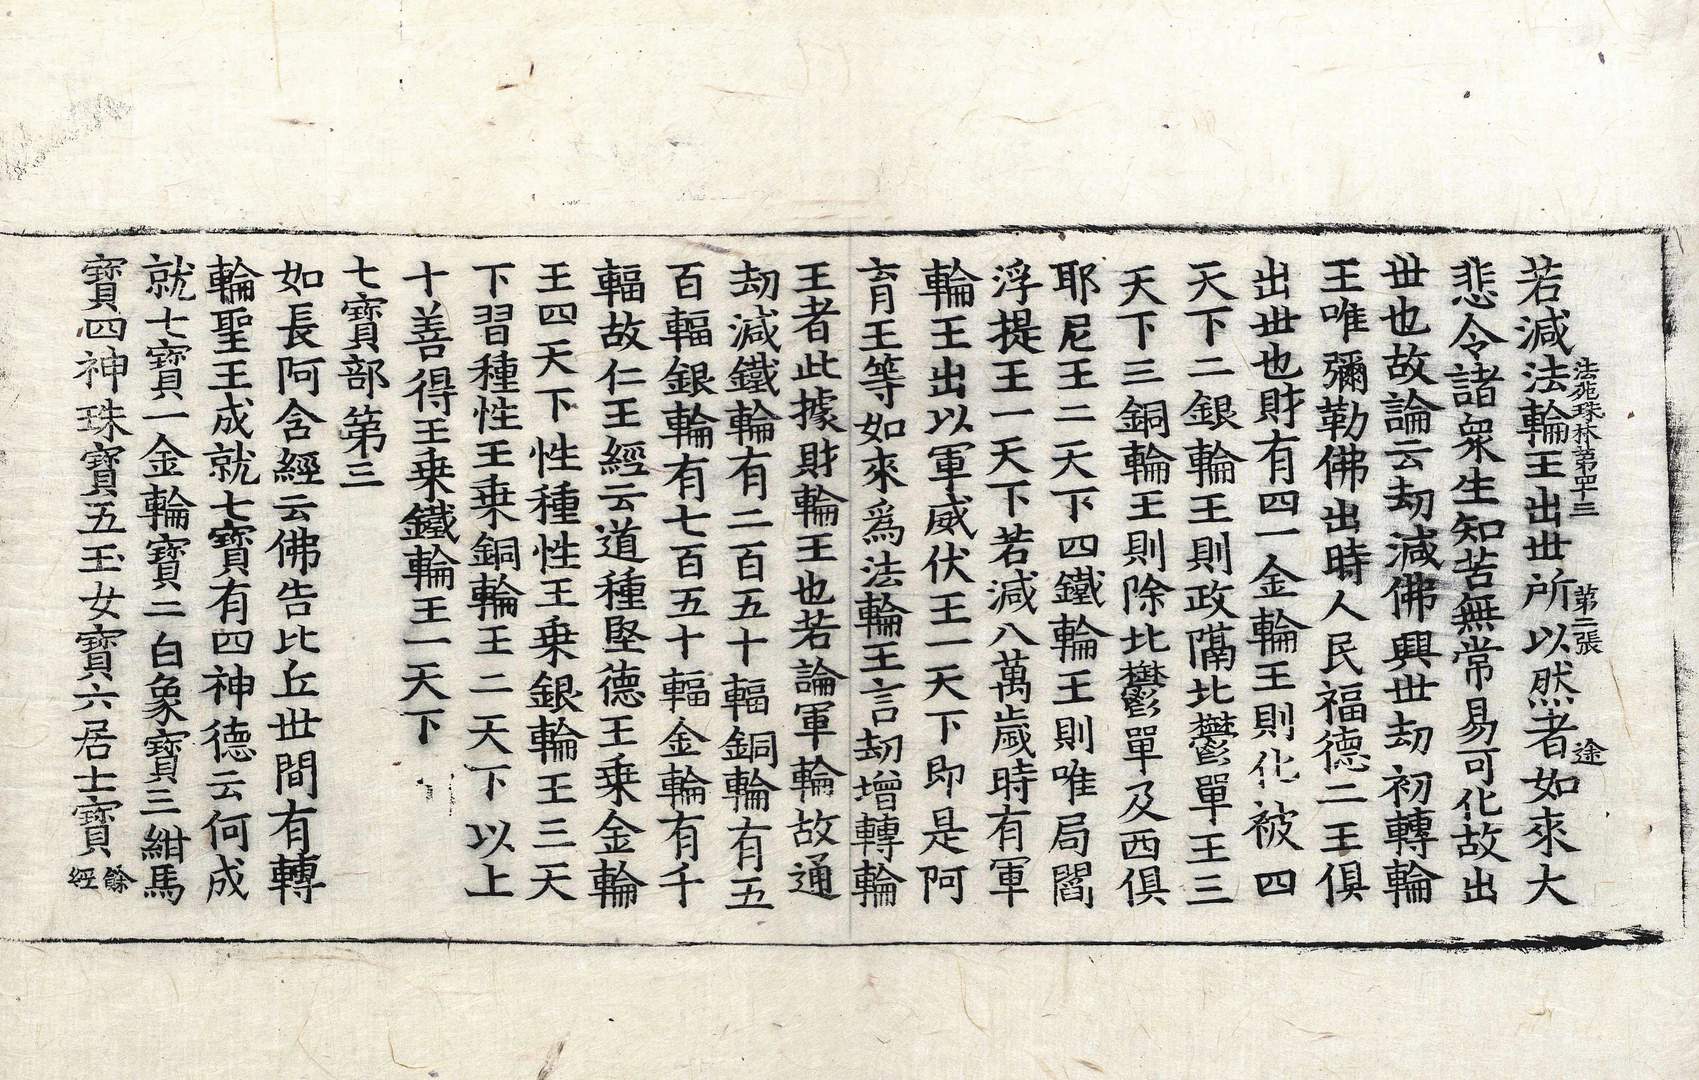 法苑珠林第四十三 第二張 途
若減法輪王出世所以然者如來大
悲令諸衆生知苦無常易可化故出
世也故論云劫減佛興世劫初轉輪
王唯彌勒佛出時人民福德二王俱
出世也財有四一金輪王則化被四
天下二銀輪王則政隔北欝單王三
天下三銅輪王則除北欝單及西俱
耶尼王二天下四鐵輪王則唯局閻
浮提王一天下若減八萬歲時有軍
輪王出以軍威伏王一天下即是阿
育王等如來爲法輪王言劫增轉輪
王者此據財輪王也若論軍輪故通
劫減鐵輪有二百五十輻銅輪有五
百輻銀輪有七百五十輻金輪有千
輻故仁王經云道種堅德王乗金輪
王四天下性種性王乗銀輪王三天
下習種性王乗銅輪王二天下以上
十善得王乗鐵輪王一天下
七寶部第三
如長阿含經云佛告比丘世間有轉
輪聖王成就七寶有四神德云何成
就七寶一金輪寶二白象寶三紺馬
寶四神珠寶五玉女寶六居士寶餘經